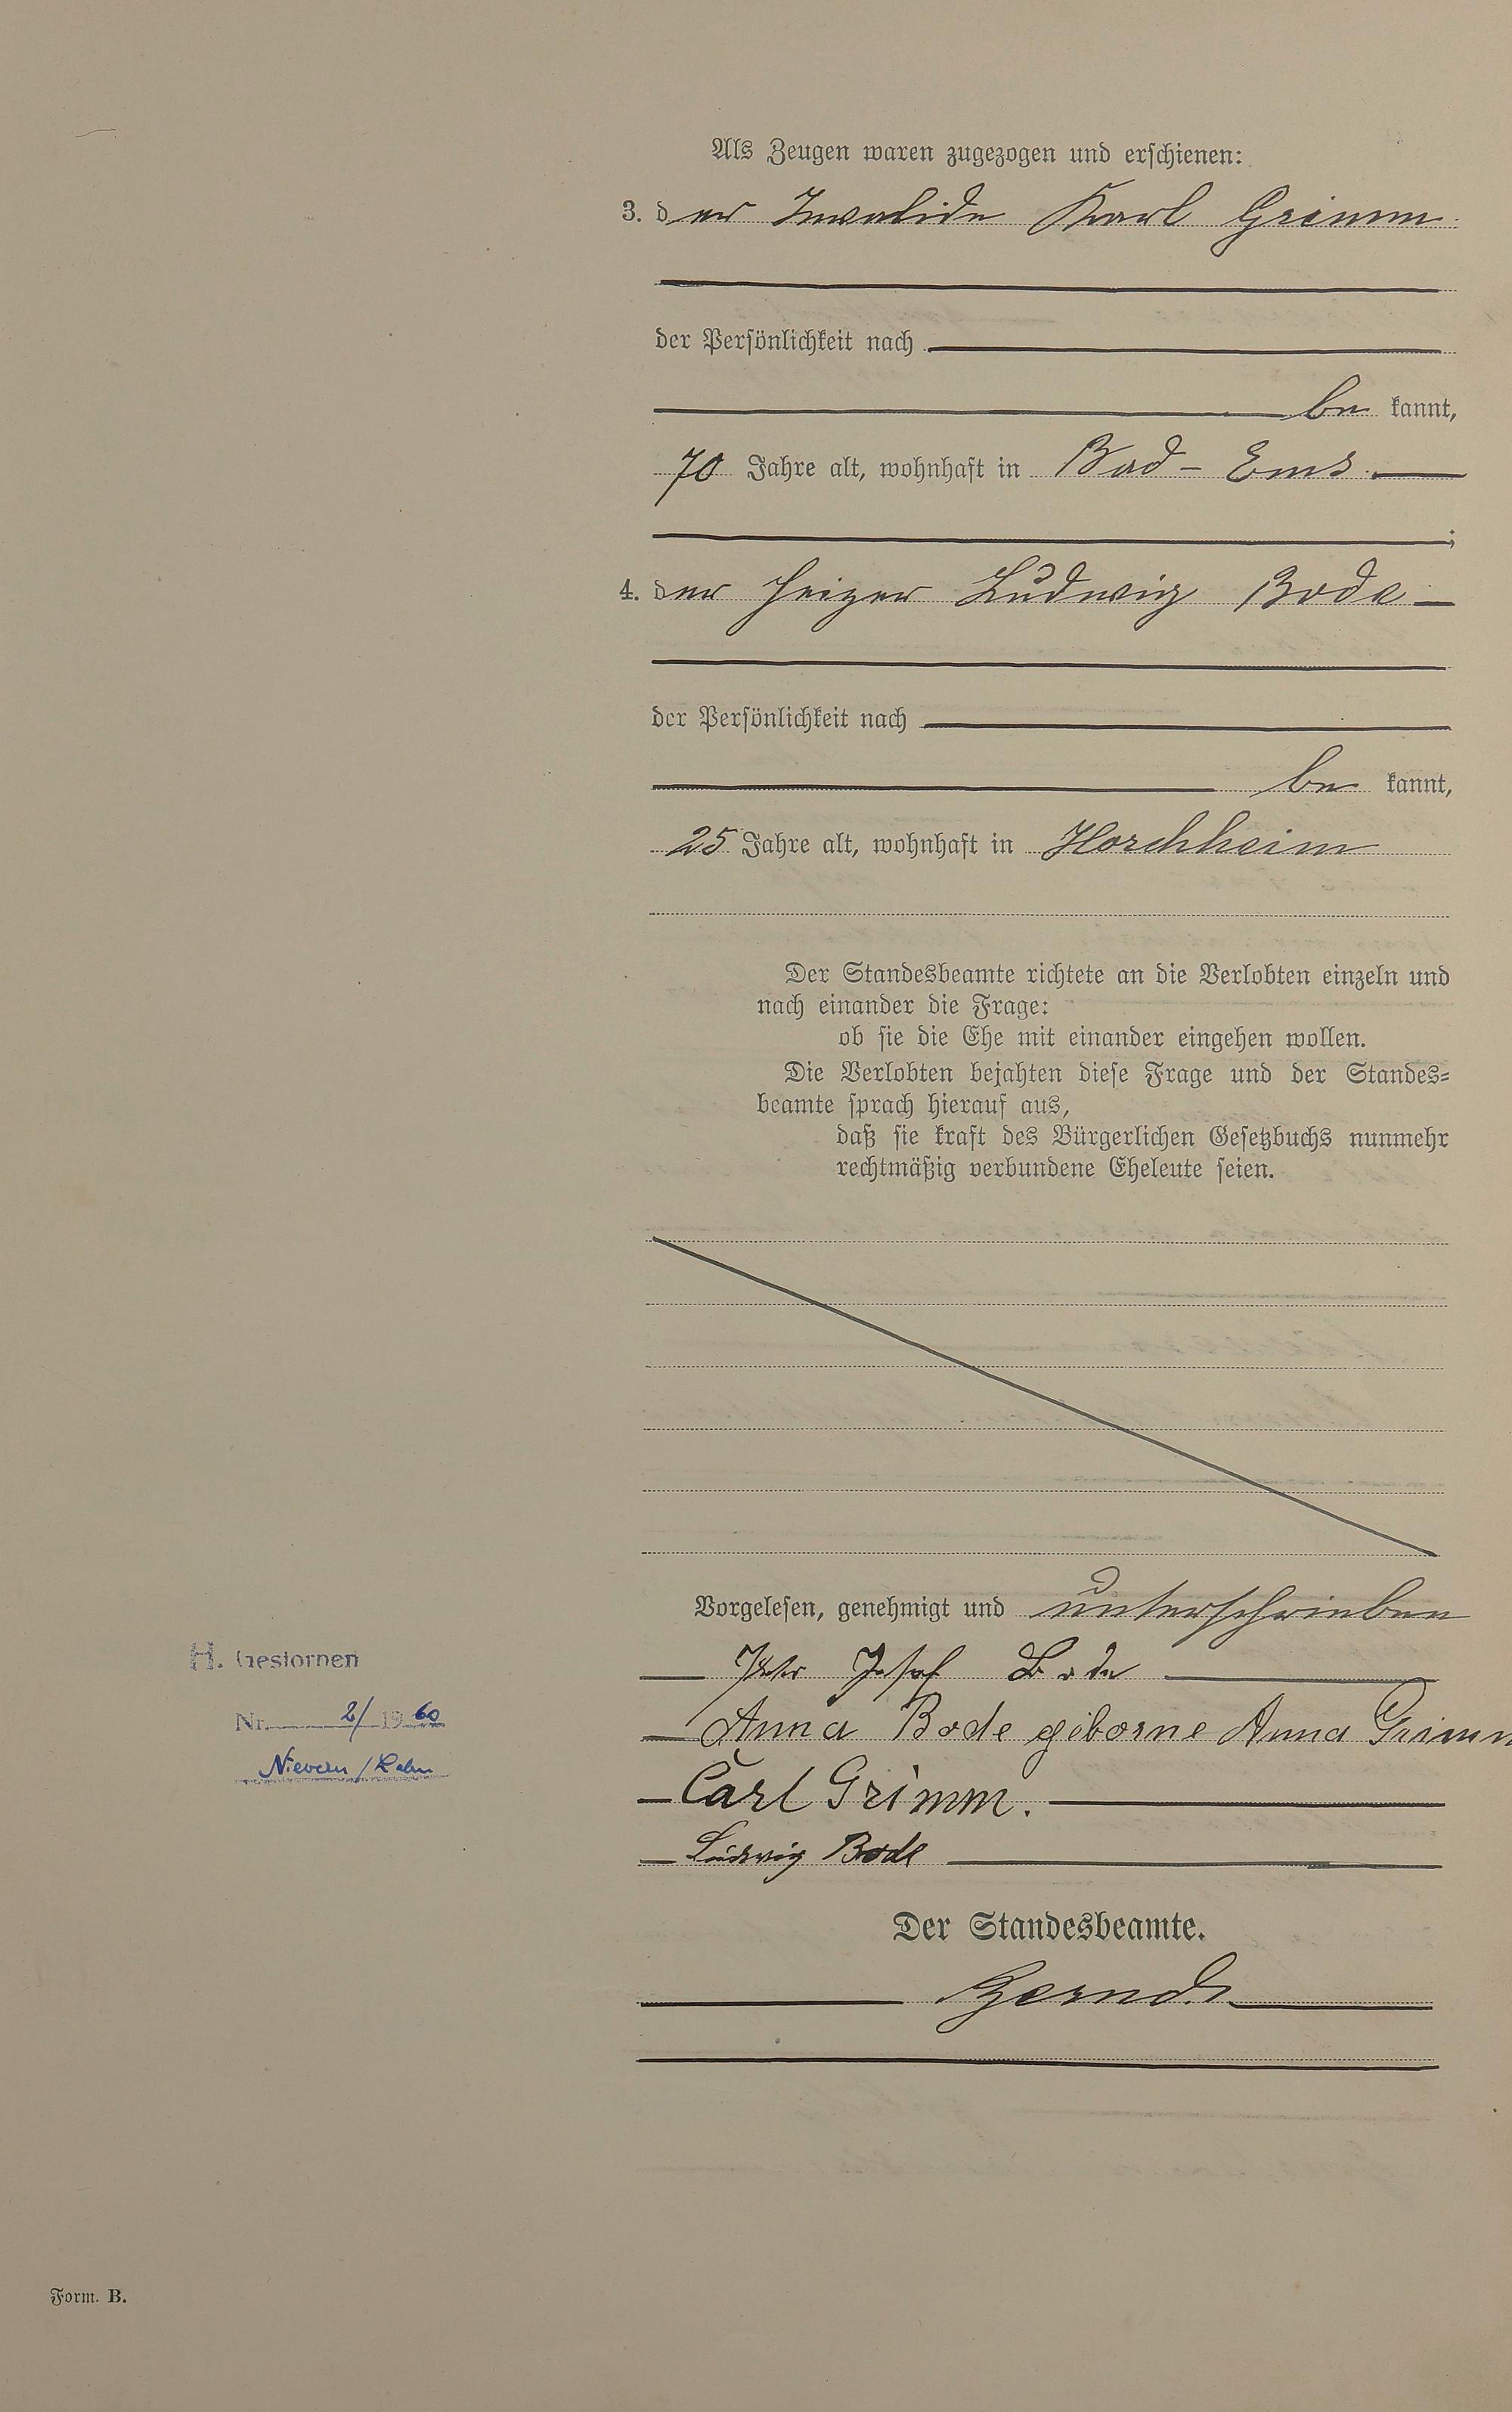 Als Zeugen waren zugezogen und erschienen:
3. der Invalide Karl Grimm
der Persönlichkeit nach
be kannt,
70 Jahre alt, wohnhaft in Bad-Ems
;
4. der Heizer Ludwig Bode
der Persönlichkeit nach
be kannt,
25 Jahre alt, wohnhaft in Horchheim
Der Standesbeamte richtete an die Verlobten einzeln und
nach einander die Frage:
ob sie die Ehe mit einander eingehen wollen.
Die Verlobten bejahten diese Frage und der Standes=
beamte sprach hierauf aus,
daß sie kraft des Bürgerlichen Gesetzbuchs nunmehr
rechtmäßig verbundene Eheleute seien.
Vorgelesen, genehmigt und unterschrieben
Peter Josef Bode
Anna Bode geborne Anna Grimm
Carl Grimm.
Ludwig Bode
H. Gestorben
Nr. 2/1960
Nievern/Lahn
Der Standesbeamte.
Form. B.